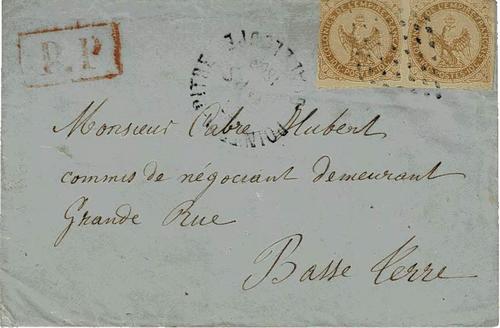 P.P
COLONIES DE L'EMPIRE FRANÇAIS
COLONIES DE L'EMPIRE FRANÇAIS
Monsieur Cabre Hubert
commis de négociant demeurant
Grande Rue
Basse Terre